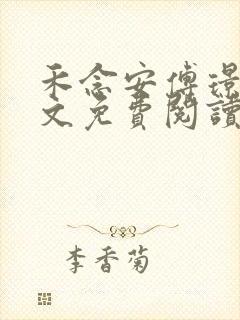 禾念安傅璟
文免費閱讀
李香菊